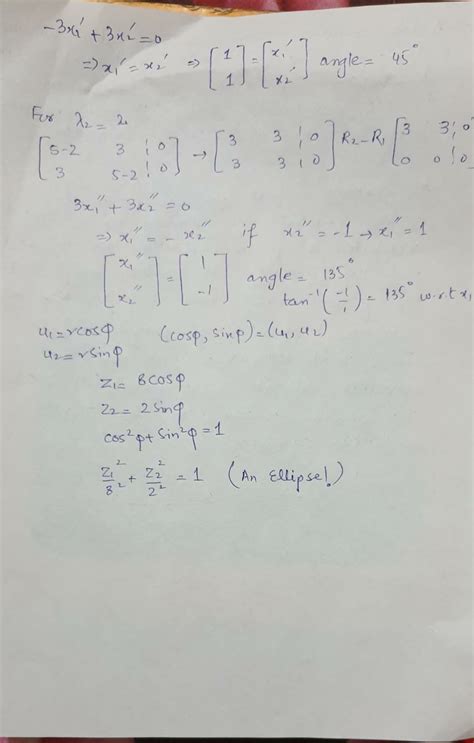 -3x₁' + 3x₂' = 0
⇒ x₁' = x₂' ⇒ [1 1] = [x₁' x₂'] angle = 45°
For λ₂ = 2
[5-2 3 | 0; 3 5-2 | 0] → [3 3 | 0; 3 3 | 0] R₂-R₁ [3 3 | 0; 0 0 | 0]
3x₁'' + 3x₂'' = 0
⇒ x₁'' = -x₂'' if x₂'' = -1 → x₁'' = 1
[x₁'' x₂''] = [1 -1] angle = 135°
tan⁻¹(-1/1) = 135° w.r.t x₁
u₁ = rcosφ (cosφ, sinφ) = (u₁, u₂)
u₂ = rsinφ
z₁ = 8cosφ
z₂ = 2sinφ
cos²φ + sin²φ = 1
z₁²/8² + z₂²/2² = 1 (An Ellipse!)